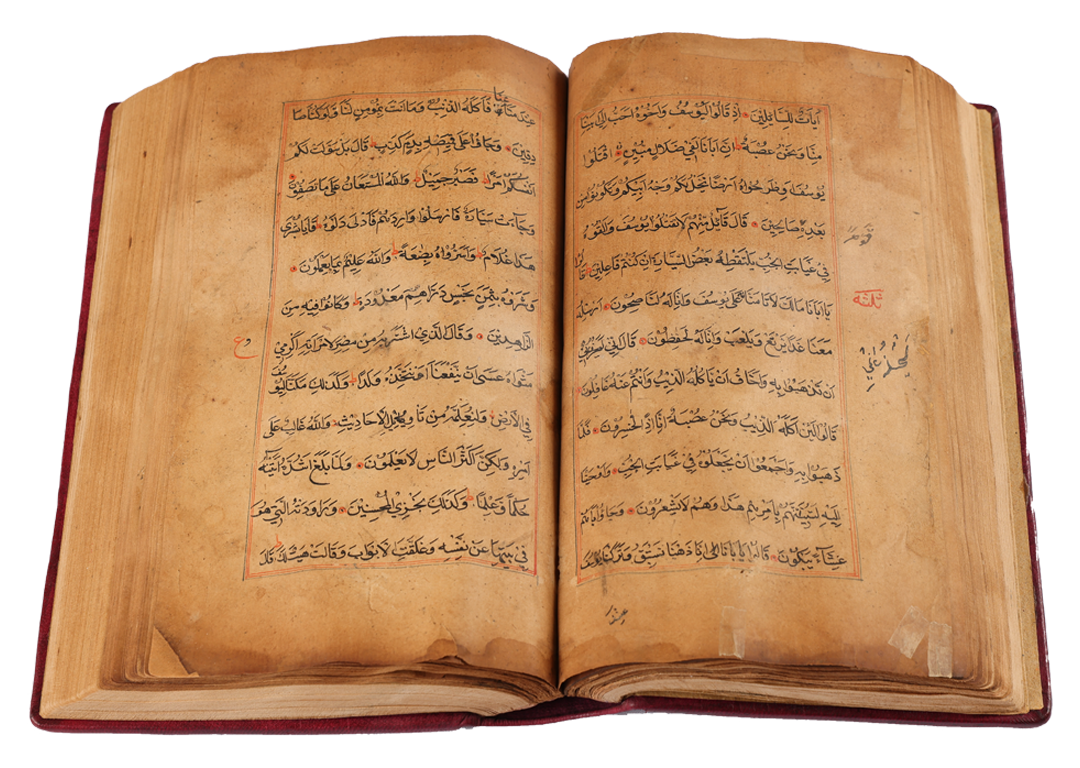 آيات للسائلين إذ قالوا ليوسف وأخوه أحب إلى أبينا
منا ونحن عصبة إن أبانا لفي ضلال مبين اقتلوا
يوسف أو اطرحوه أرضا يخل لكم وجه أبيكم وتكونوا من
بعده صالحين قال قائل منهم لا تقتلوا يوسف وألقوه
في غيابت الجب يلتقطه بعض السيارة إن كنتم فاعلين قالوا
يا أبانا مالك لا تأمنا على يوسف وإنا له لناصحون أرسله
معنا غدا يرتع ويلعب وإنا له لحفظون قال إني ليحزنني
أن تذهبوا به وأخاف أن يأكله الذيب وأنتم عنه غافلون
قالوا لئن أكله الذيب ونحن عصبة إنا إذا لخسرون فلما
ذهبوا به وأجمعوا أن يجعلوه في غيابت الجب وأوحينا
إليه لتنبئنهم بأمرهم هذا وهم لا يشعرون وجاؤا أباهم
عشاء يبكون قالوا يا أبانا إنا ذهبنا نستبق وتركنا يوسف
ثلثة
عند متاعنا فأكله الذيب وما أنت بمؤمن لنا ولو كنا صا
دقين وجاؤا على قميصه بدم كذب قال بل سولت لكم
أنفسكم أمرا فصبر جميل والله المستعان على ما تصفون
وجاءت سيارة فأرسلوا واردهم فأدلى دلوه قال يا بشرى
هذا غلام وأسروه بضعة والله عليم بما يعملون
وشروه بثمن بخس دراهم معدودة وكانوا فيه من
الزاهدين وقال الذي اشتريه من مصر لامرأته أكرمي
مثواه عسى أن ينفعنا أو نتخذه ولدا وكذلك مكنا ليوسف
في الأرض ولنعلمه من تأويل الأحاديث والله غالب على
أمره ولكن أكثر الناس لا يعلمون ولما بلغ أشده آتيناه
حكما وعلما وكذلك نجزي المحسنين وراودته التي هو
في بيتها عن نفسه وغلقت الأبواب وقالت هيت لك قال
ع